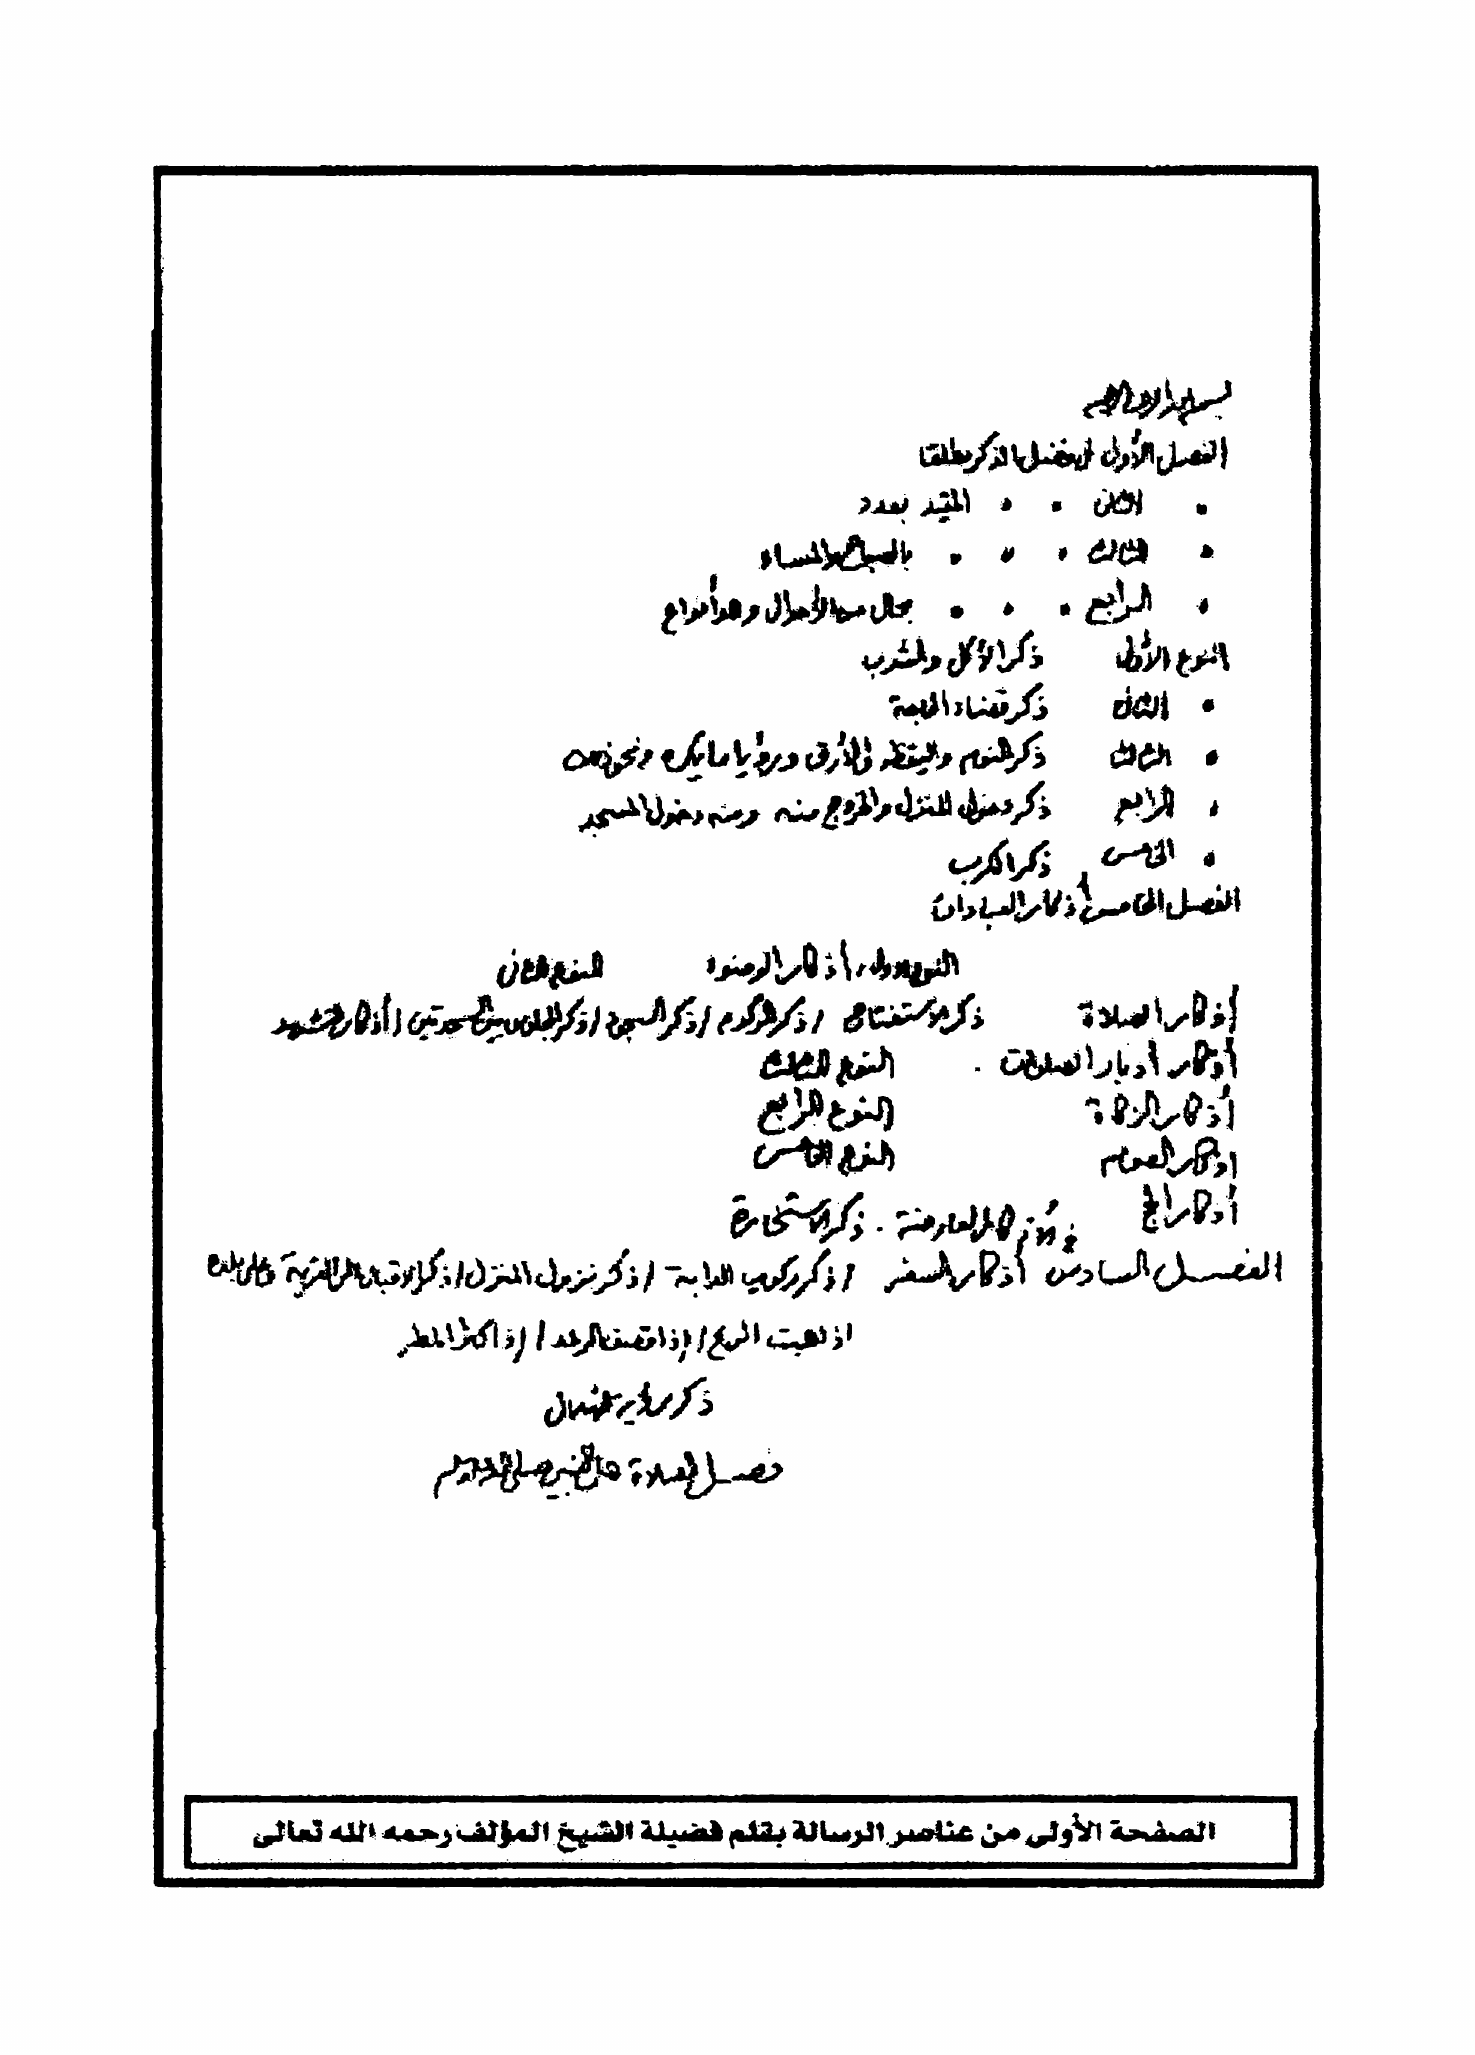 بسم الله الرحمن الرحيم
الفصل الأول في فضل الذكر مطلقا
. الثاني . . المقيد بعدد
. الثالث . . . بالصباح والمساء
. الرابع . . . بحال من الأحوال وهو أنواع
النوع الأول ذكر الأكل والشرب
. الثاني ذكر قضاء الحاجة
. الثالث ذكر النوم واليقظه والأرق ورؤيا ما يكره ونحو ذلك
. الرابع ذكر دخول المنزل والخروج منه ومنه دخول المسجد
. الخامس ذكر الكرب
الفصل الخامس أذكار العبادات
النوع الأول، أذكار الوضوء النوع الثاني
أذكار الصلاة ذكر الاستفتاح / ذكر الركوع / ذكر السجود / ذكر الجلوس بين السجدتين / أذكار التشهد
أذكار أدبار الصلوات . النوع الثالث
أذكار الزكاة النوع الرابع
اذكار الصوم النوع الخامس
أذكار الحج
في الأذكار العارضة . ذكر الاستخارة
الفصل السادس أذكار السفر / ذكر ركوب الدابة / ذكر نزول المنزل / ذكر الاقبال الى القرية وعلى بلده
اذا هبت الريح / إذا قصف الرعد / إذا كثر المطر
ذكر رؤية الهلال
فصل الصلاة على النبي صلى الله عليه وسلم
الصفحة الأولى من عناصر الرسالة بقلم فضيلة الشيخ المؤلف رحمه الله تعالى